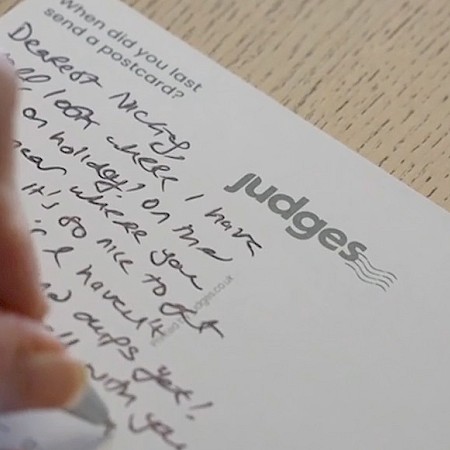 When did you last
send a postcard?
Dearest Nicky,
look I have
on holiday? on the
near where you
It's so nice to get
I haven't
oups yet!
with you
judges
judges.co.uk